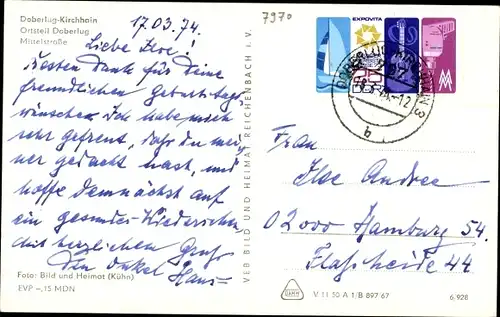 Doberlug-Kirchhain
Ortsteil Doberlug
Mittelstraße
17.03.74.
7970
Liebe Ilse!
Besten Dank für Deine
freundlichen Geburtstags
wünsche. Ich habe mich
sehr gefreut, daß du mei
ner gedacht hast, und
hoffe demnächst auf
ein gesundes Wiedersehen
Mit herzlichem Gruß
Dein Onkel Hans
Foto: Bild und Heimat (Kühn)
EVP –,15 MDN
VEB BILD UND HEIMAT REICHENBACH i. V.
EXPOVITA
MM
Frau
Ilse Andree
02000 Hamburg 54.
Flaßheide 44
V 11 50 A 1/B 897 67
6.928